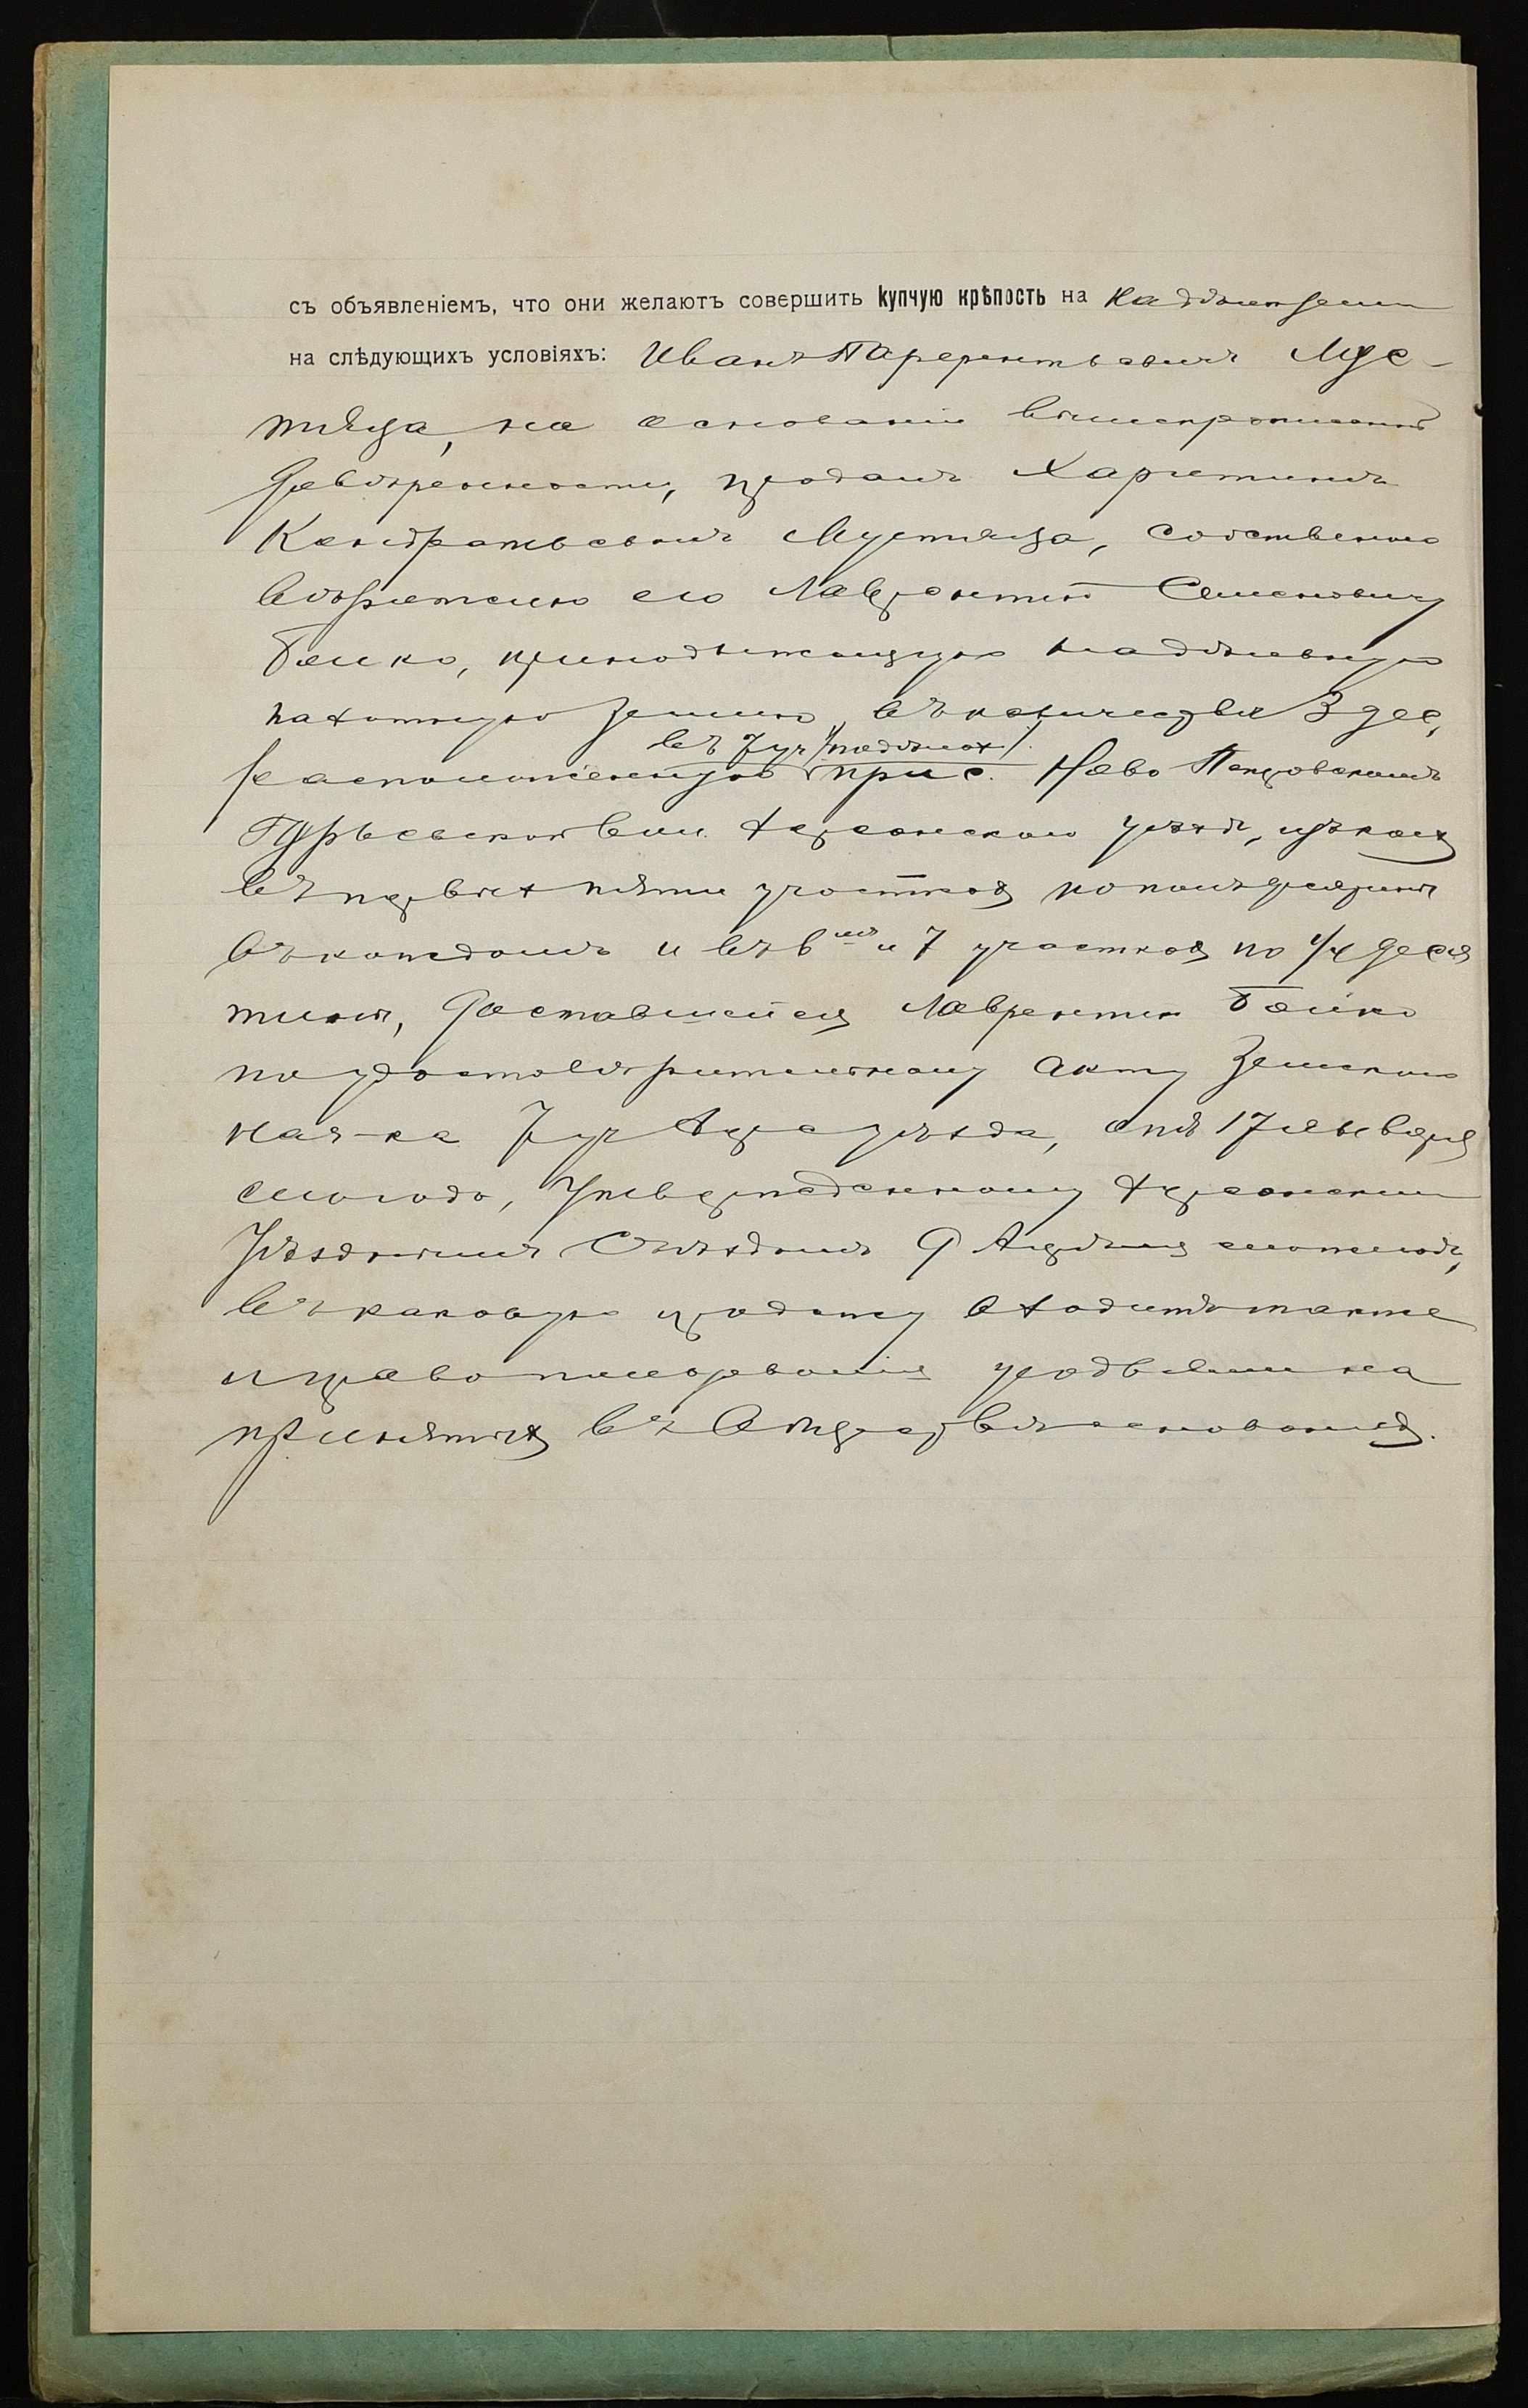 съ объявленіемъ, что они желаютъ совершить купчую крѣпость на
на слѣдующихъ условіяхъ: Иванъ Терентьевичъ Мус-
тяца, на основаніи вышепрописанной
довѣренности, продалъ Харитину
Кондратьевичъ Мустяца, собственно
вѣрителю его Лаврентій Семеновичу
Бойко, принадлежащую надѣльную
пахотную землю, въ количествѣ 3 дес,
въ 7 уч /надѣлах/.
расположенную при с. Ново Петровскомъ
Гурьевской вол. Херсонскаго уѣзда, изъ коихъ
въ первыхъ пяти участкахъ по полъ десятины
въ каждомъ и въ 6мъ и 7 участкахъ по 1/4 деся
тины, доставшейся Лаврентію Бойко
по удостовѣрительному акту Земскаго
Нач-ка 7 уч Херс уѣзда, отъ 17 января
сего года, Утвержденному Херсонскимъ
Уѣзднымъ Съѣздомъ 9 Апрѣля сего же года,
въ каковую продажу входитъ также
и право пользованія усадьбами на
принятыхъ въ Обществѣ основаніяхъ.